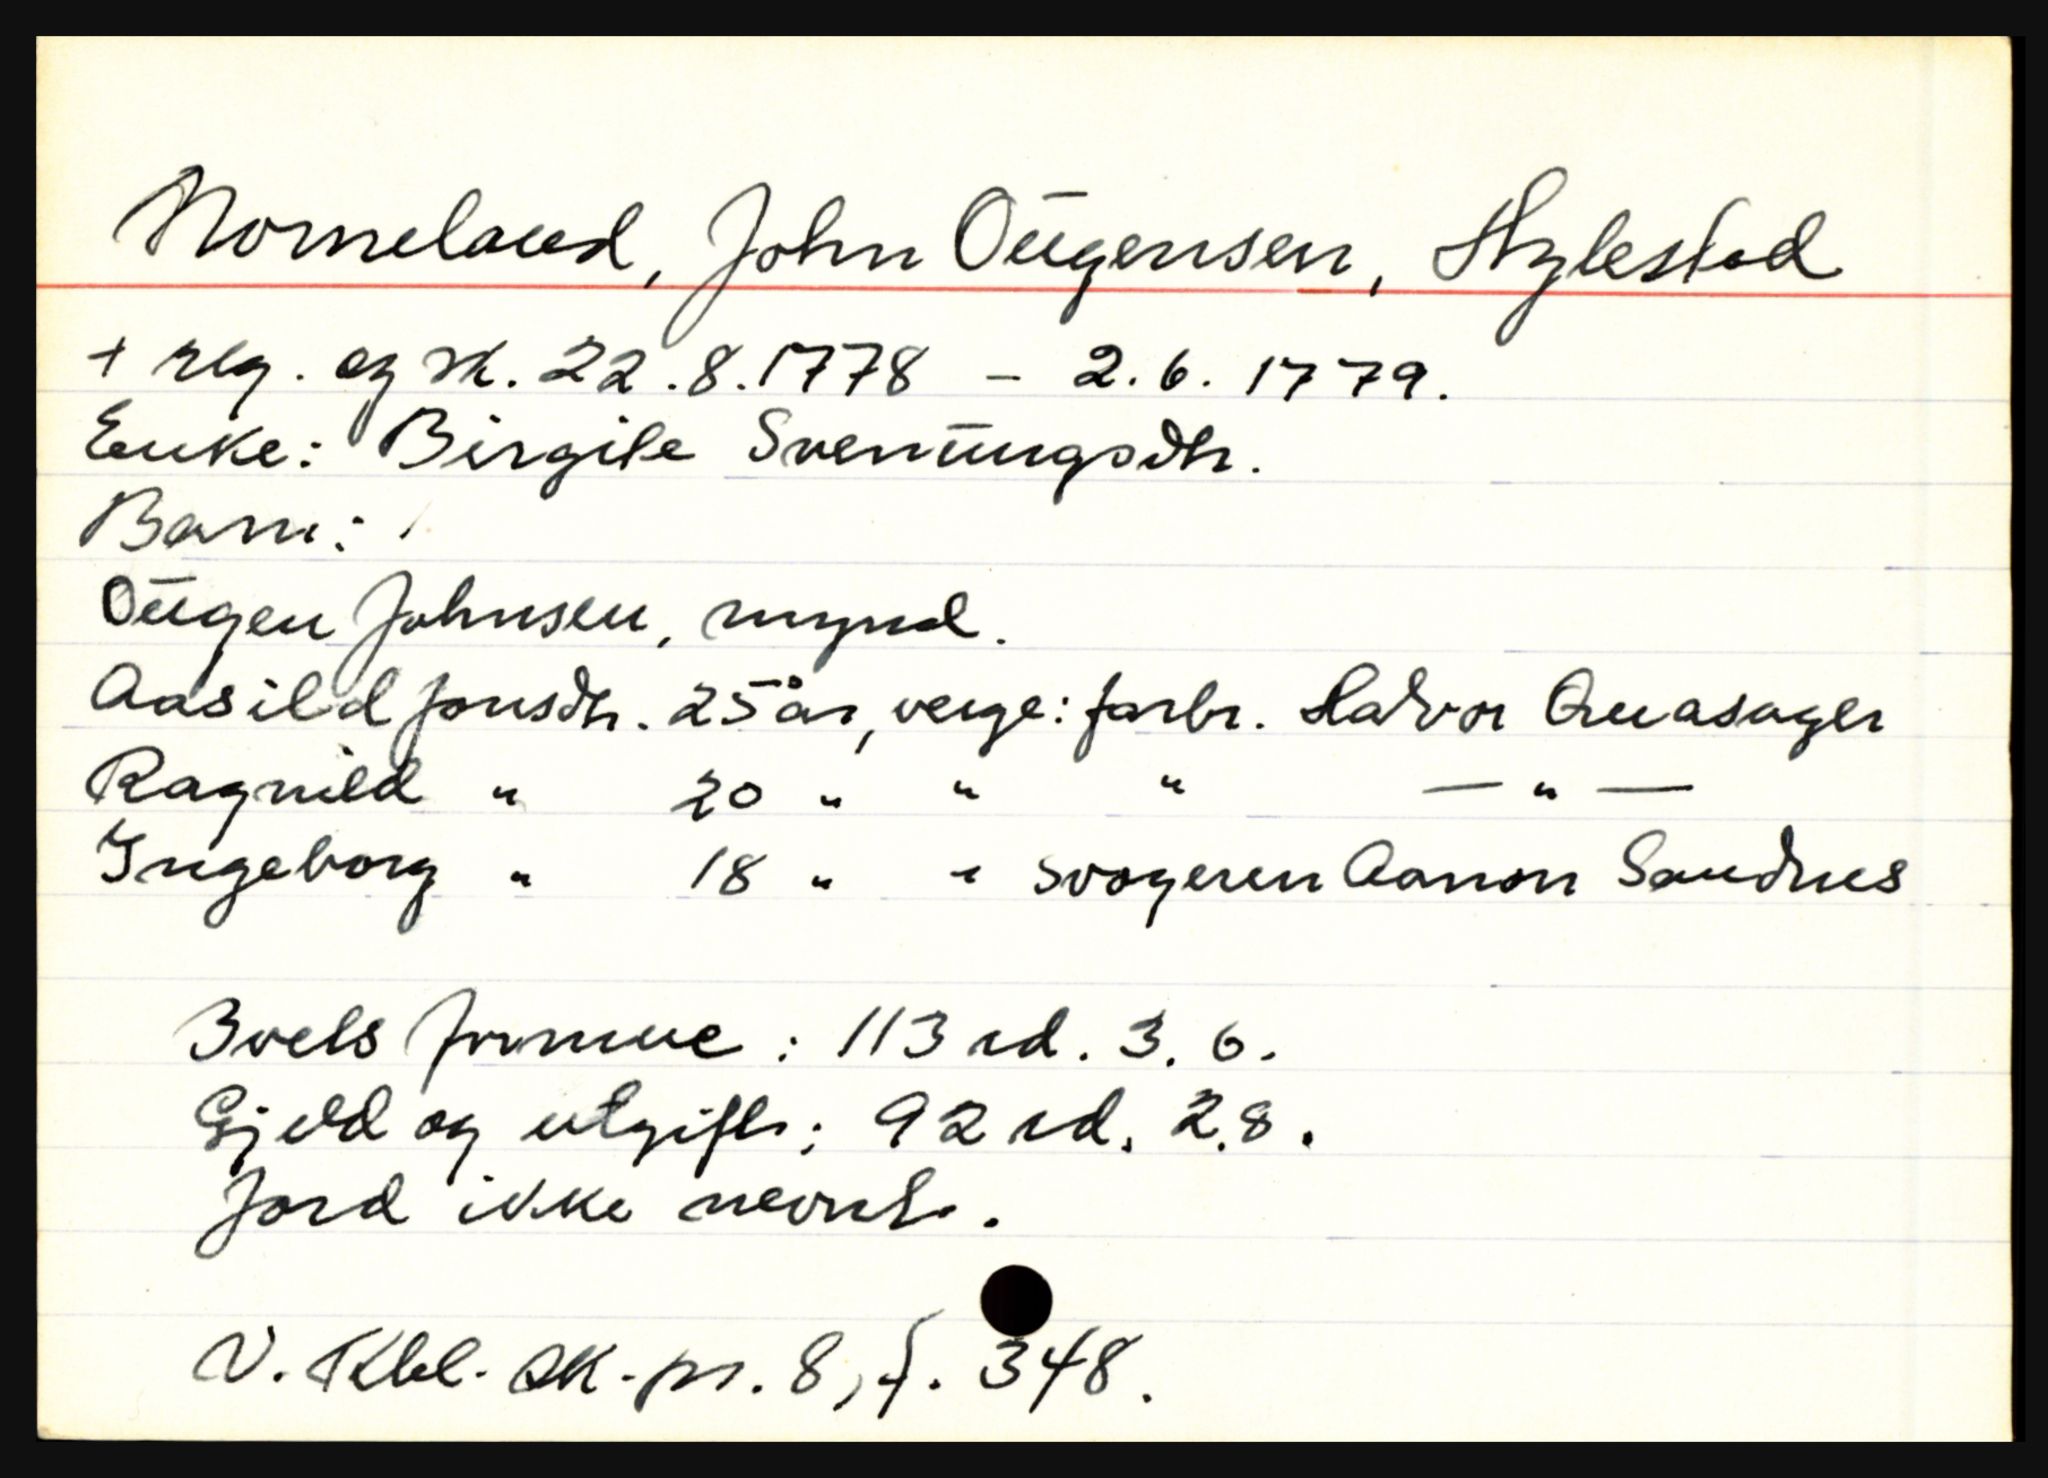 Nomeland, John Ougensen, Hylestad
+ reg. og sk. 22.8.1778 - 2.6.1779.
Enke: Birgite Svenungsdtr.
Barn:
Ougen Johnsen, mynd.
Aasild Jonsdtr. 25 år, verge: farbr. Halvor Aasager
Ragnild " 20 " " " — " —
Ingeborg " 18 " " svogeren Aanon Sandnes
Boets formue: 113 rd. 3. 6.
Gjeld og utgifter: 92 rd. 2.8.
Jord ikke nevnt.
V. Rbl. sk.pr. 8, f. 348.